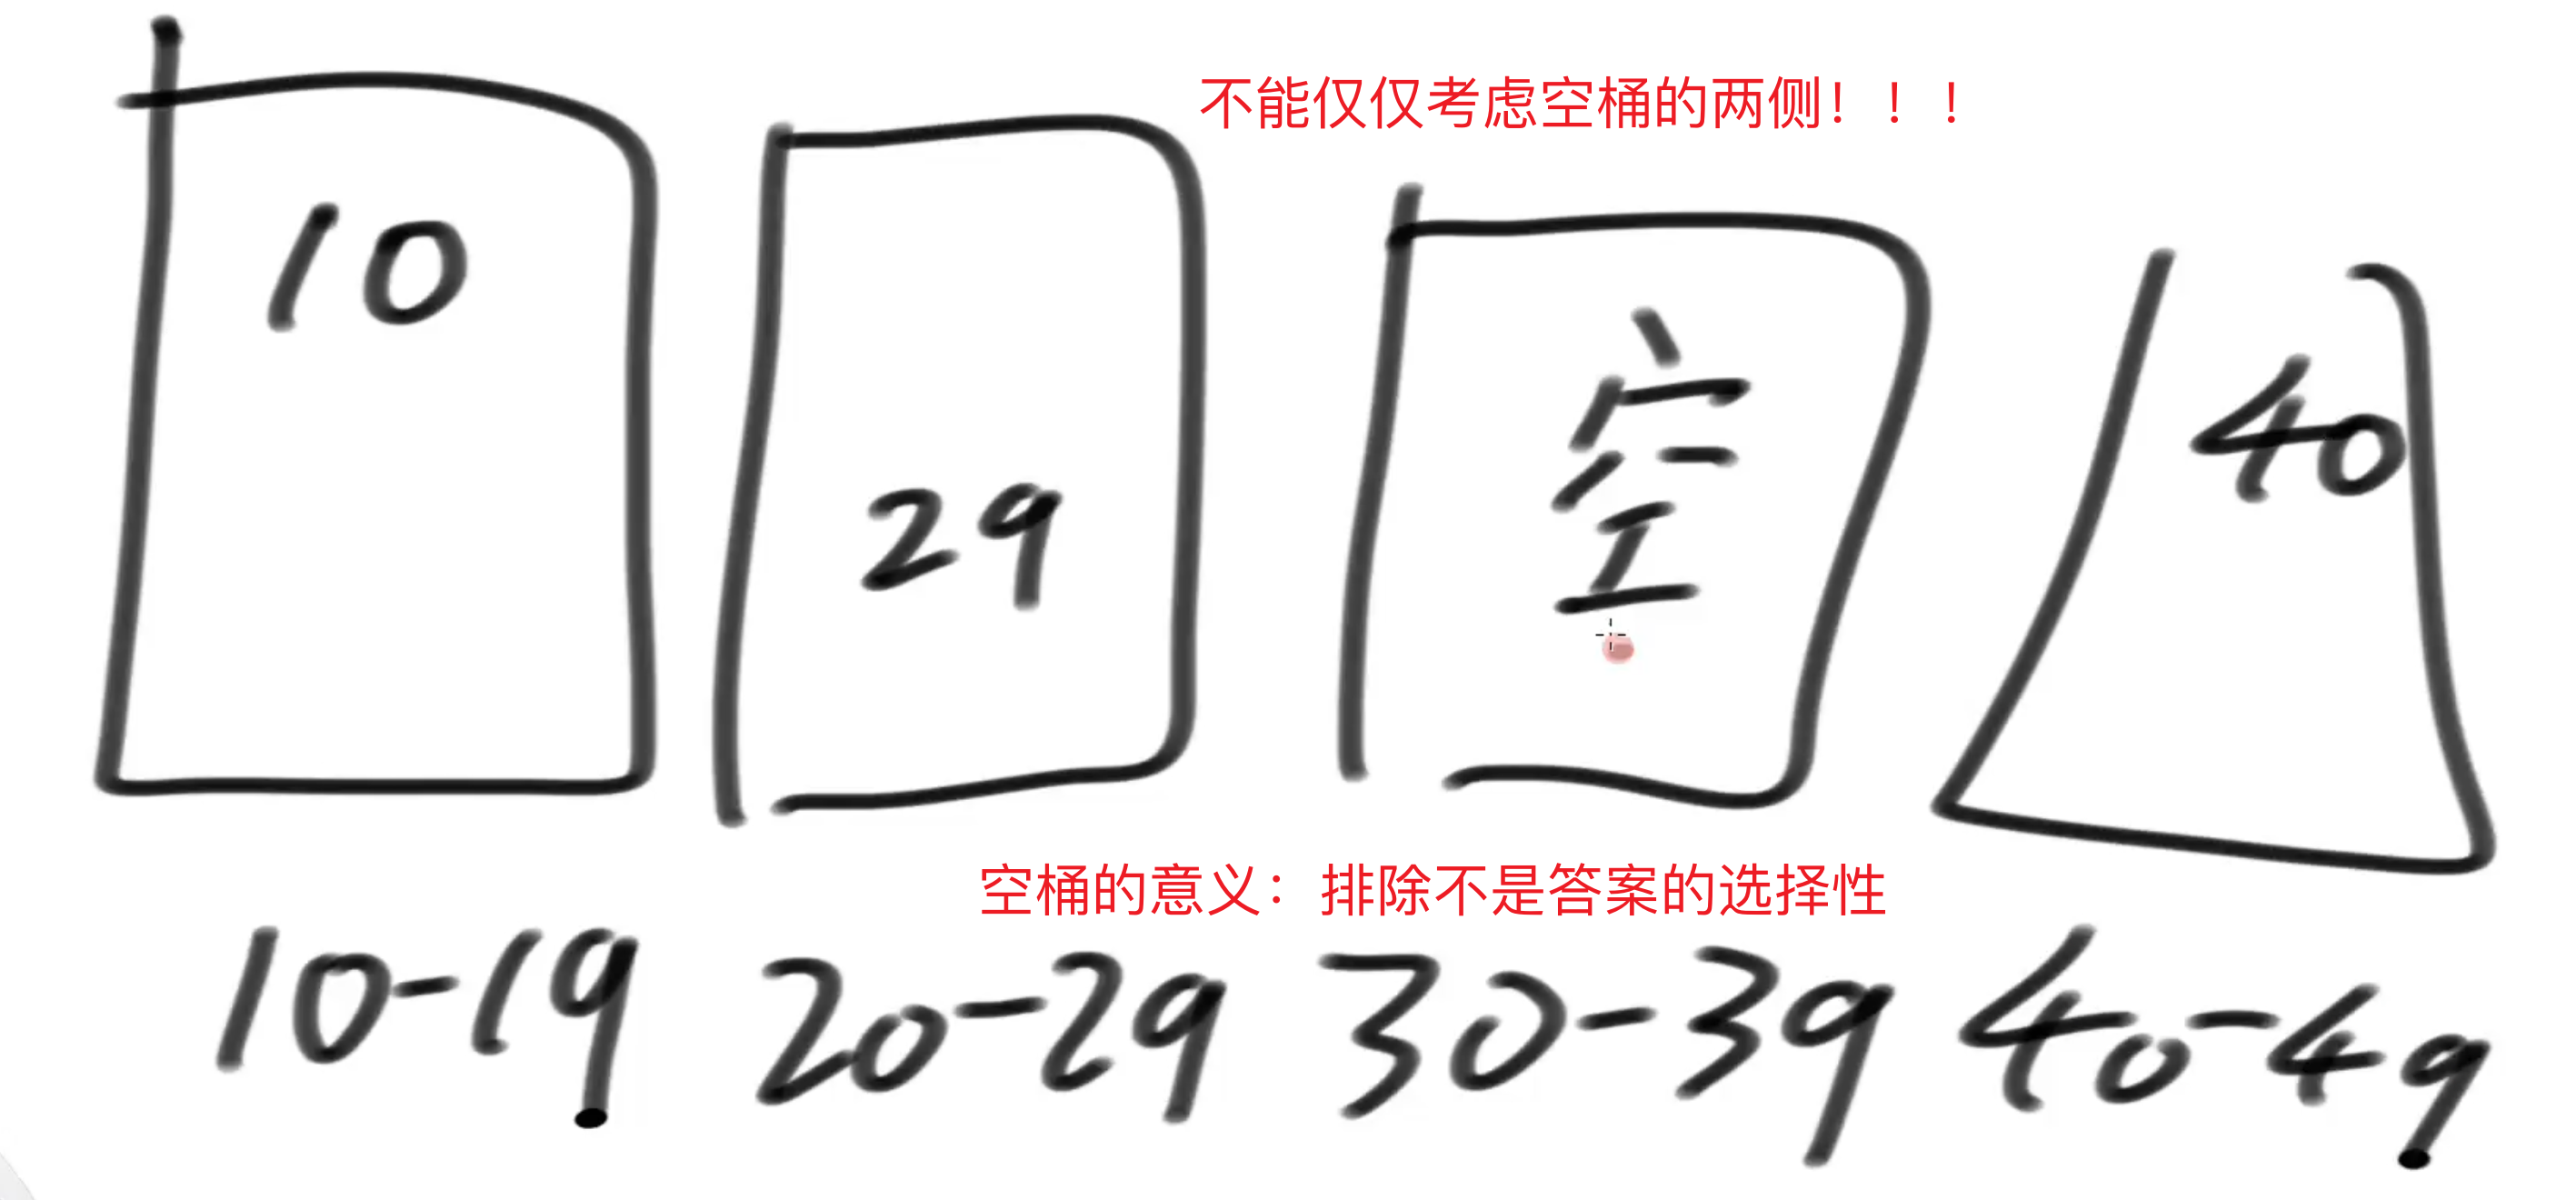 不能仅仅考虑空桶的两侧！！！
10
29
空
40
空桶的意义：排除不是答案的选择性
10-19 20-29 30-39 40-49